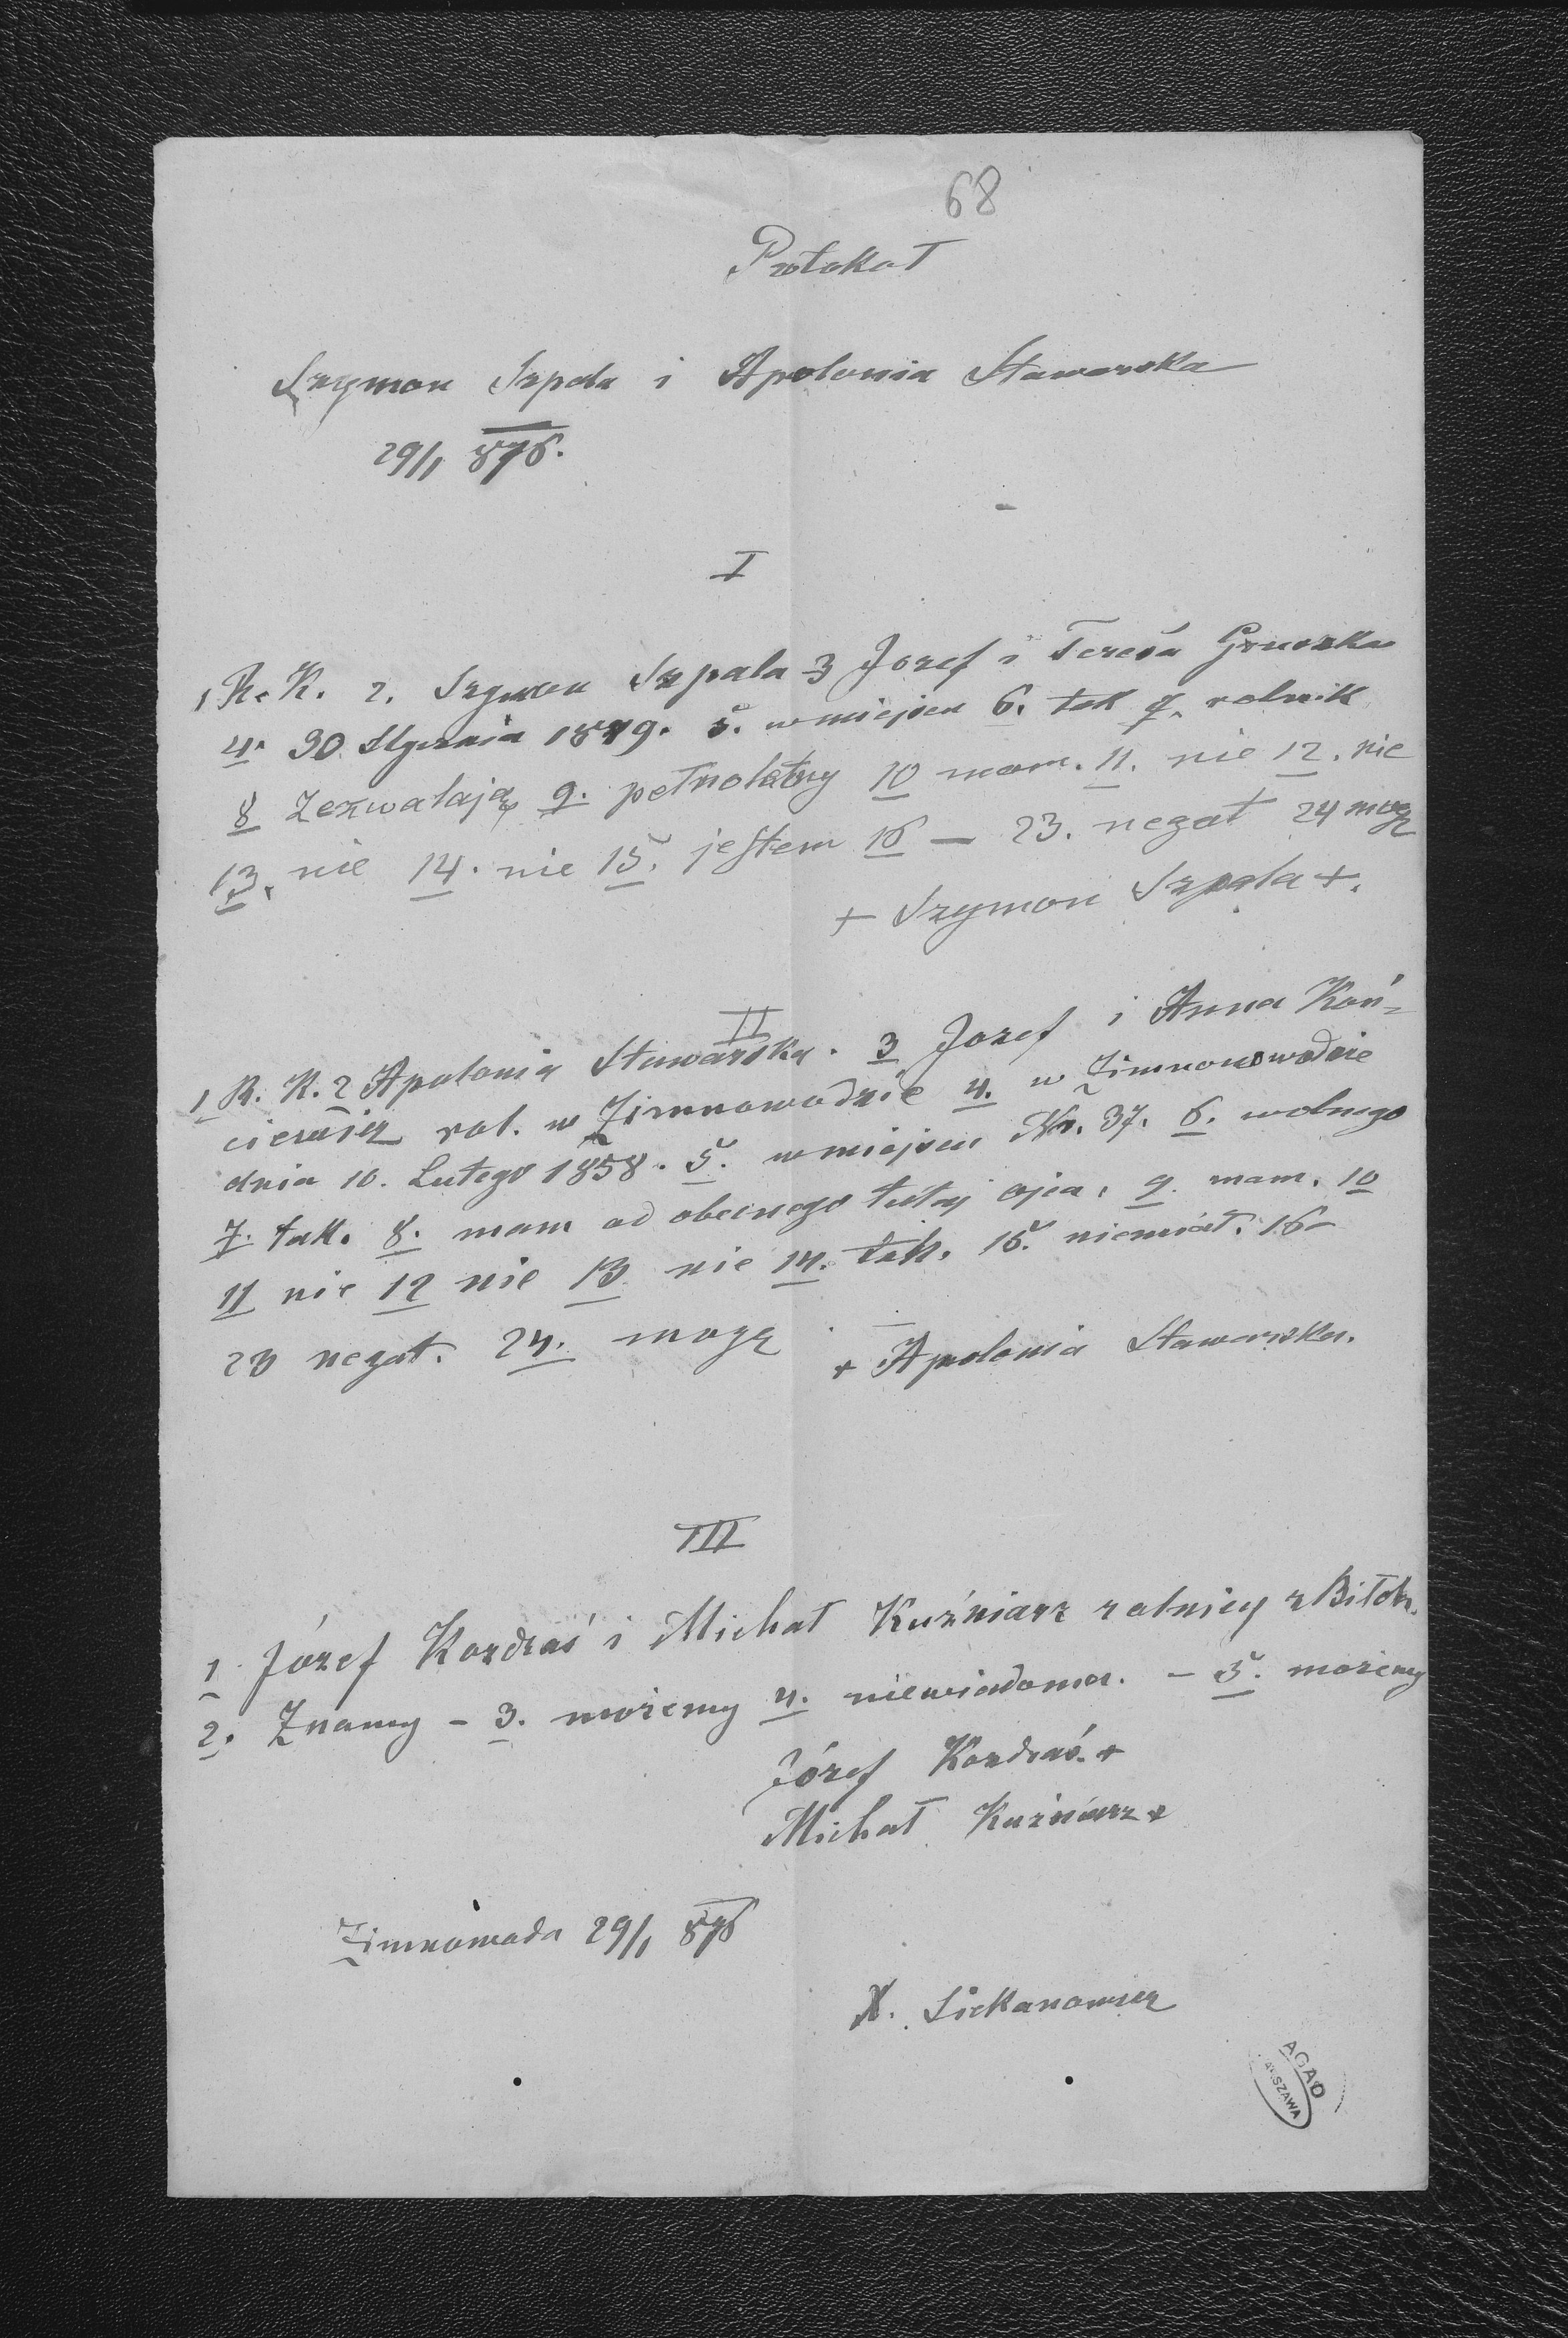 68
Protokoł
Szymon Szpala i Apolonia Stawarska
29/1 876.
I
1 R. K. 2. Szymon Szpala 3 Jozef i Teresa Gruszka
4. 30 Stycznia 1849. 5. w miejscu 6. tak 7. rolnik
8 Zezwalają 9. pełnoletny 10 mam. 11. nie 12. nie
13. nie 14. nie 15. jestem 16 — 23. negat 24 mogę
+ Szymon Szpala +.
II
1 R. K. 2 Apolonia Stawarska. 3 Jozef i Anna Koń-
ciewicz rol. w Zimnowodzie 4. w Zimnowodzie
dnia 10. Lutego 1858. 5. w miejscu Nr. 37. 6. wolnego
7. tak. 8. mam od obecnego tutaj ojca, 9. mam. 10
11 nie 12 nie 13 nie 14. tak. 15. niemiał. 16-
23 negat. 24. mogę
+ Apolonia Stawarska.
III
1. Józef Kozdraś i Michał Kuźniarz rolnicy z
2. Znamy - 3. możemy 4. niewiadoma. - 5. możemy
Józef Kozdraś. +
Michał Kuźniarz +
Zimnowoda 29/1 876
X. Siekanowicz
AGAD
WARSZAWA